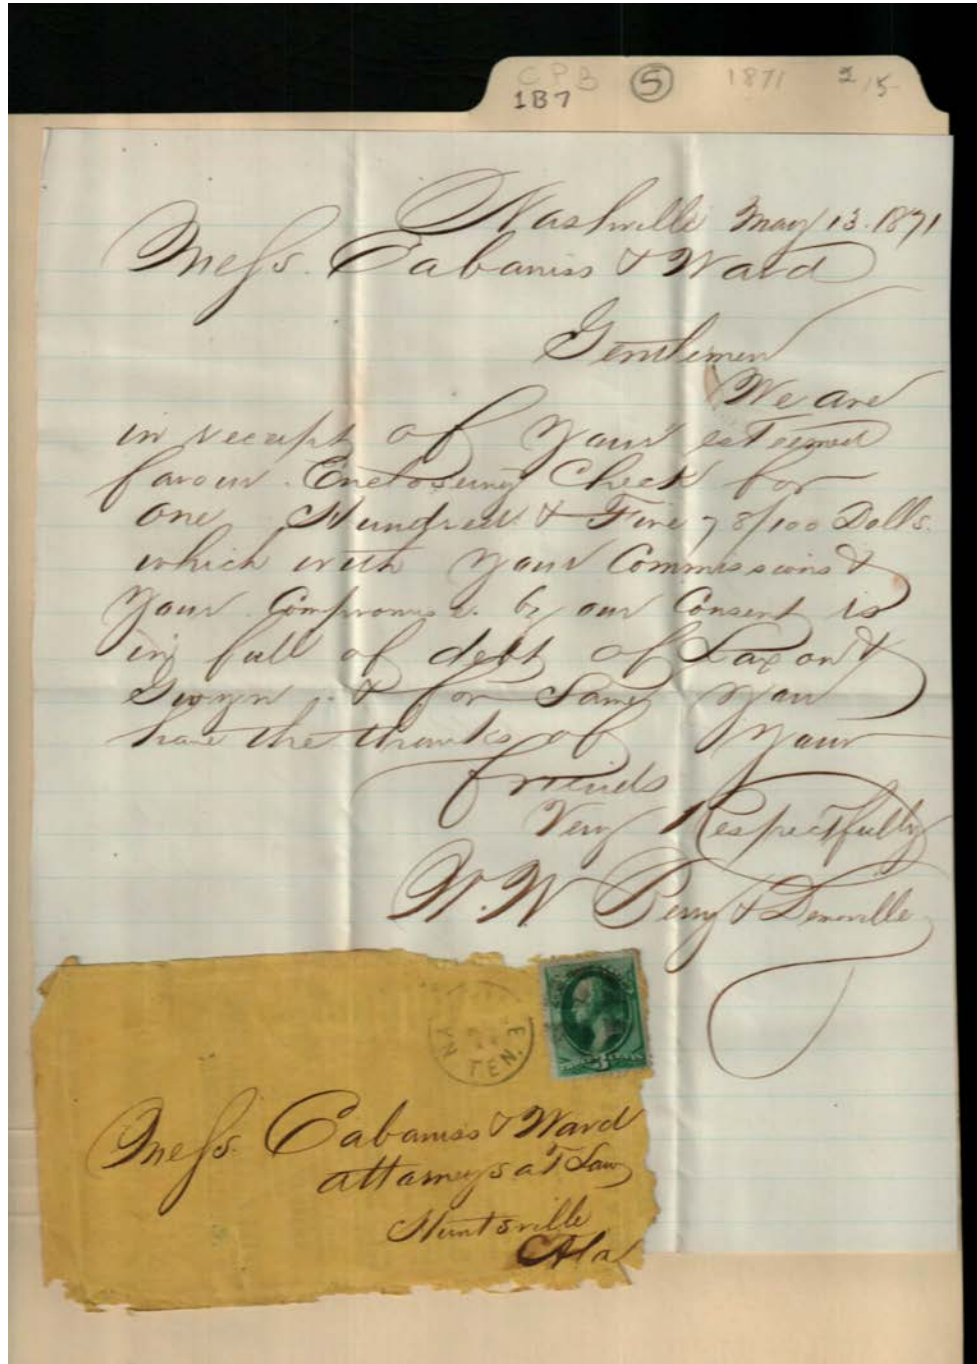 CPB (5) 1871 2/5
1B7
Nashville May 13. 1871
Mess. Cabaniss & Ward
Gentlemen
We are
in receipt of your esteemed
favour. Enclosing Check for
One Hundred & Five 78/100 Dolls.
which with your Commissions &
your Compromise by our Consent is
in full of debt of Laxon &
Gwyn. & for Same you
have the thanks of your
friends
Very Respectfully
W. W. Berry & Demoville
TEN.
Mess. Cabaniss & Ward
Attorneys at Law
Huntsville
Ala